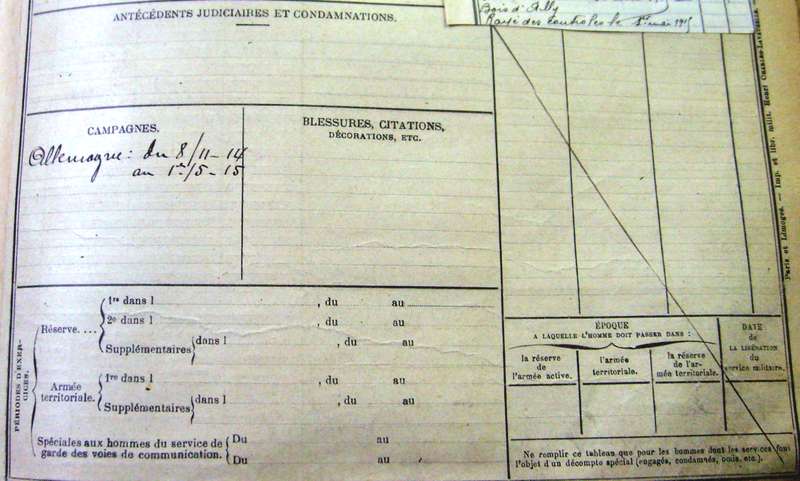 ANTÉCÉDENTS JUDICIAIRES ET CONDAMNATIONS.
Bois d'Ailly
Rayé des controles le 1er mai 1915
CAMPAGNES.
Allemagne: du 8/11-14
au 1er/5-15
BLESSURES, CITATIONS,
DÉCORATIONS, ETC.
PÉRIODES D'EXERCICES.
Réserve....
1re dans l , du au
2e dans l , du au
Supplémentaires dans l , du au
Armée
territoriale.
1re dans l , du au
Supplémentaires dans l , du au
Spéciales aux hommes du service de
garde des voies de communication.
Du au
Du au
ÉPOQUE
A LAQUELLE L'HOMME DOIT PASSER DANS :
la réserve
de
l'armée active.
l'armée
territoriale.
la réserve
de l'ar-
mée territoriale.
DATE
de
LA LIBÉRATION
du
service militaire.
Ne remplir ce tableau que pour les hommes dont les services font
l'objet d'un décompte spécial (engagés, condamnés, omis, etc.).
Paris et Limoges. — Imp. et libr. milit. Henri CHARLES-LAVAUZELLE